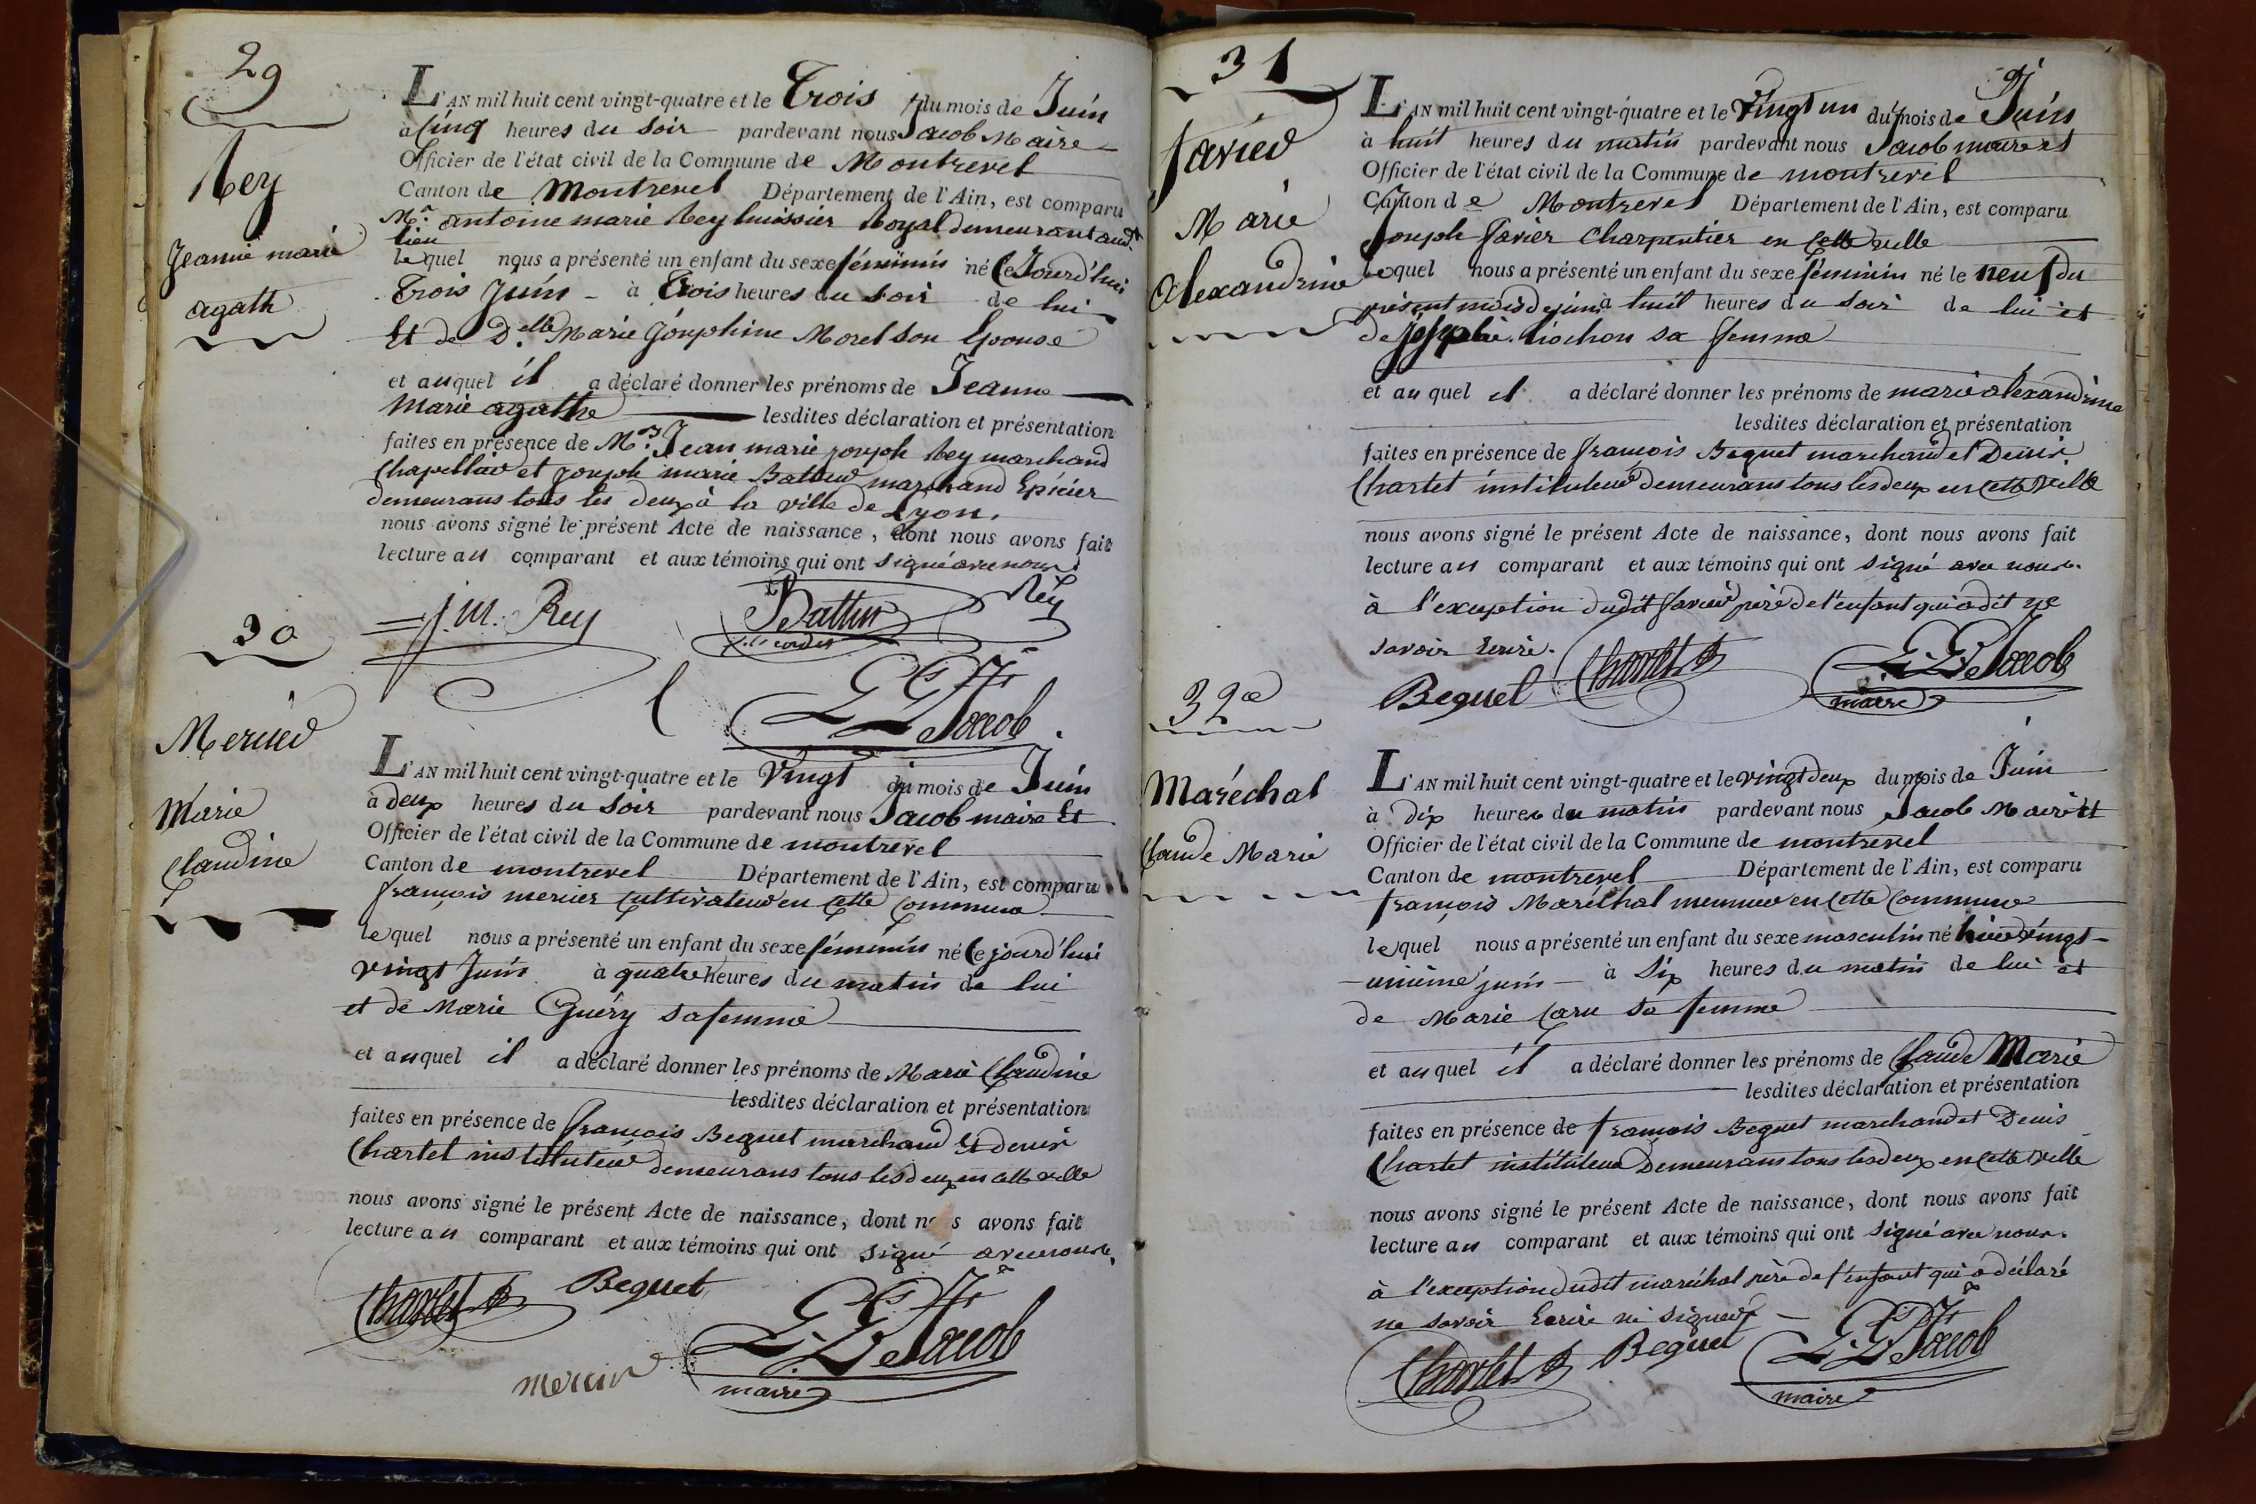 29
Rey
Jeanne marie
agath
L'AN mil huit cent vingt-quatre et le Trois du mois de Juin
à Cinq heures du Soir pardevant nous Jacob Maire
Officier de l'état civil de la Commune de Montrevel
Canton de Montrevel Département de l'Ain, est comparu
Mr. antoine marie Rey huissier Royal demeurant audt
lieu
lequel nous a présenté un enfant du sexe féminin né Ce Jourd'hui
Trois Juin à Trois heures du Soir de lui
Et de D.elle Marie Joséphine Morel son Epouse
et auquel il a déclaré donner les prénoms de Jeanne
Marie agathe lesdites déclaration et présentation
faites en présence de Mrs. Jean marie joseph Rey marchand
Chapellier et joseph marie Battur marchand Epicier
demeurans tous les deux à la ville de Lyon.
nous avons signé le présent Acte de naissance, dont nous avons fait
lecture au comparant et aux témoins qui ont signé avec nous
J. M. Rey Battur Rey
Jacob
30
Mercier
Marie
Claudine
L'AN mil huit cent vingt-quatre et le Vingt du mois de Juin
à deux heures du Soir pardevant nous Jacob maire Et
Officier de l'état civil de la Commune de montrevel
Canton de montrevel Département de l'Ain, est comparu
françois mercier Cultivateur en Cette Commune
lequel nous a présenté un enfant du sexe féminin né Ce jourd'hui
vingt Juin à quatre heures du matin de lui
et de Marie Guéry sa femme
et auquel il a déclaré donner les prénoms de Marie Claudine
lesdites déclaration et présentation
faites en présence de françois Beguet marchand Et denis
Chartet instituteur demeurans tous les deux en cette ville
nous avons signé le présent Acte de naissance, dont nous avons fait
lecture au comparant et aux témoins qui ont signé avec nous.
Chartet Beguet
Jacob
mercier maire
31
favier
Marie
alexandrine
L'AN mil huit cent vingt-quatre et le Vingt un du mois de Juin
à huit heures du matin pardevant nous Jacob maire et
Officier de l'état civil de la Commune de montrevel
Canton de Montrevel Département de l'Ain, est comparu
Joseph favier Charpentier en Cette ville
lequel nous a présenté un enfant du sexe féminin né le neuf du
présent mois de juin à huit heures du soir de lui et
de Josephe Liochon sa femme
et auquel il a déclaré donner les prénoms de marie alexandrine
lesdites déclaration et présentation
faites en présence de françois Beguet marchand et Denis
Chartet instituteur demeurans tous les deux en Cette ville
nous avons signé le présent Acte de naissance, dont nous avons fait
lecture au comparant et aux témoins qui ont signé avec nous.
à l'exception dudit favier père de l'enfant qui a dit ne
savoir Ecrire.
Beguet Chartet Jacob
maire
32e
Maréchal
Claude Marie
L'AN mil huit cent vingt-quatre et le vingt deux du mois de Juin
à dix heures du matin pardevant nous Jacob Maire Et
Officier de l'état civil de la Commune de montrevel
Canton de montrevel Département de l'Ain, est comparu
françois Maréchal meunier en Cette Commune
lequel nous a présenté un enfant du sexe masculin né hier vingt-
unieme juin à Six heures du matin de lui et
de Marie Caru sa femme
et auquel il a déclaré donner les prénoms de Claude Marie
lesdites déclaration et présentation
faites en présence de françois Beguet marchand et Denis
Chartet instituteur Demeurans tous les deux en Cette ville
nous avons signé le présent Acte de naissance, dont nous avons fait
lecture au comparant et aux témoins qui ont signé avec nous.
à l'exception dudit maréchal père de l'enfant qui a déclaré
ne savoir Ecrire ni signer
Chartet Beguet Jacob
maire